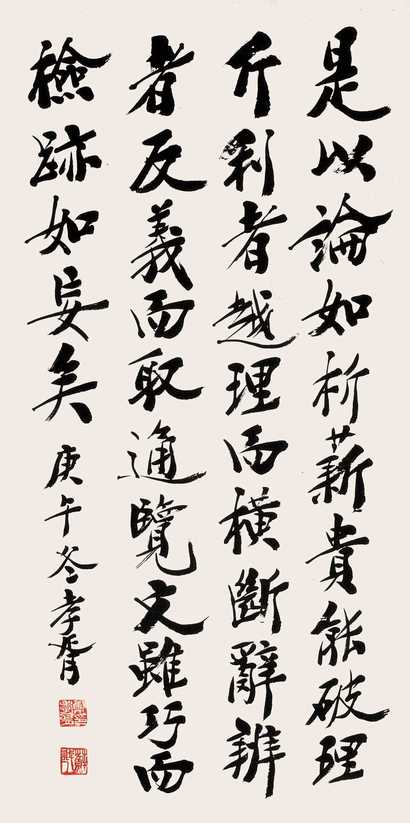 是以論如析薪貴能破理
斤利者越理而橫斷辭辨
者反義而取通覽文雖巧而
檢跡如妄矣 庚午冬孝胥